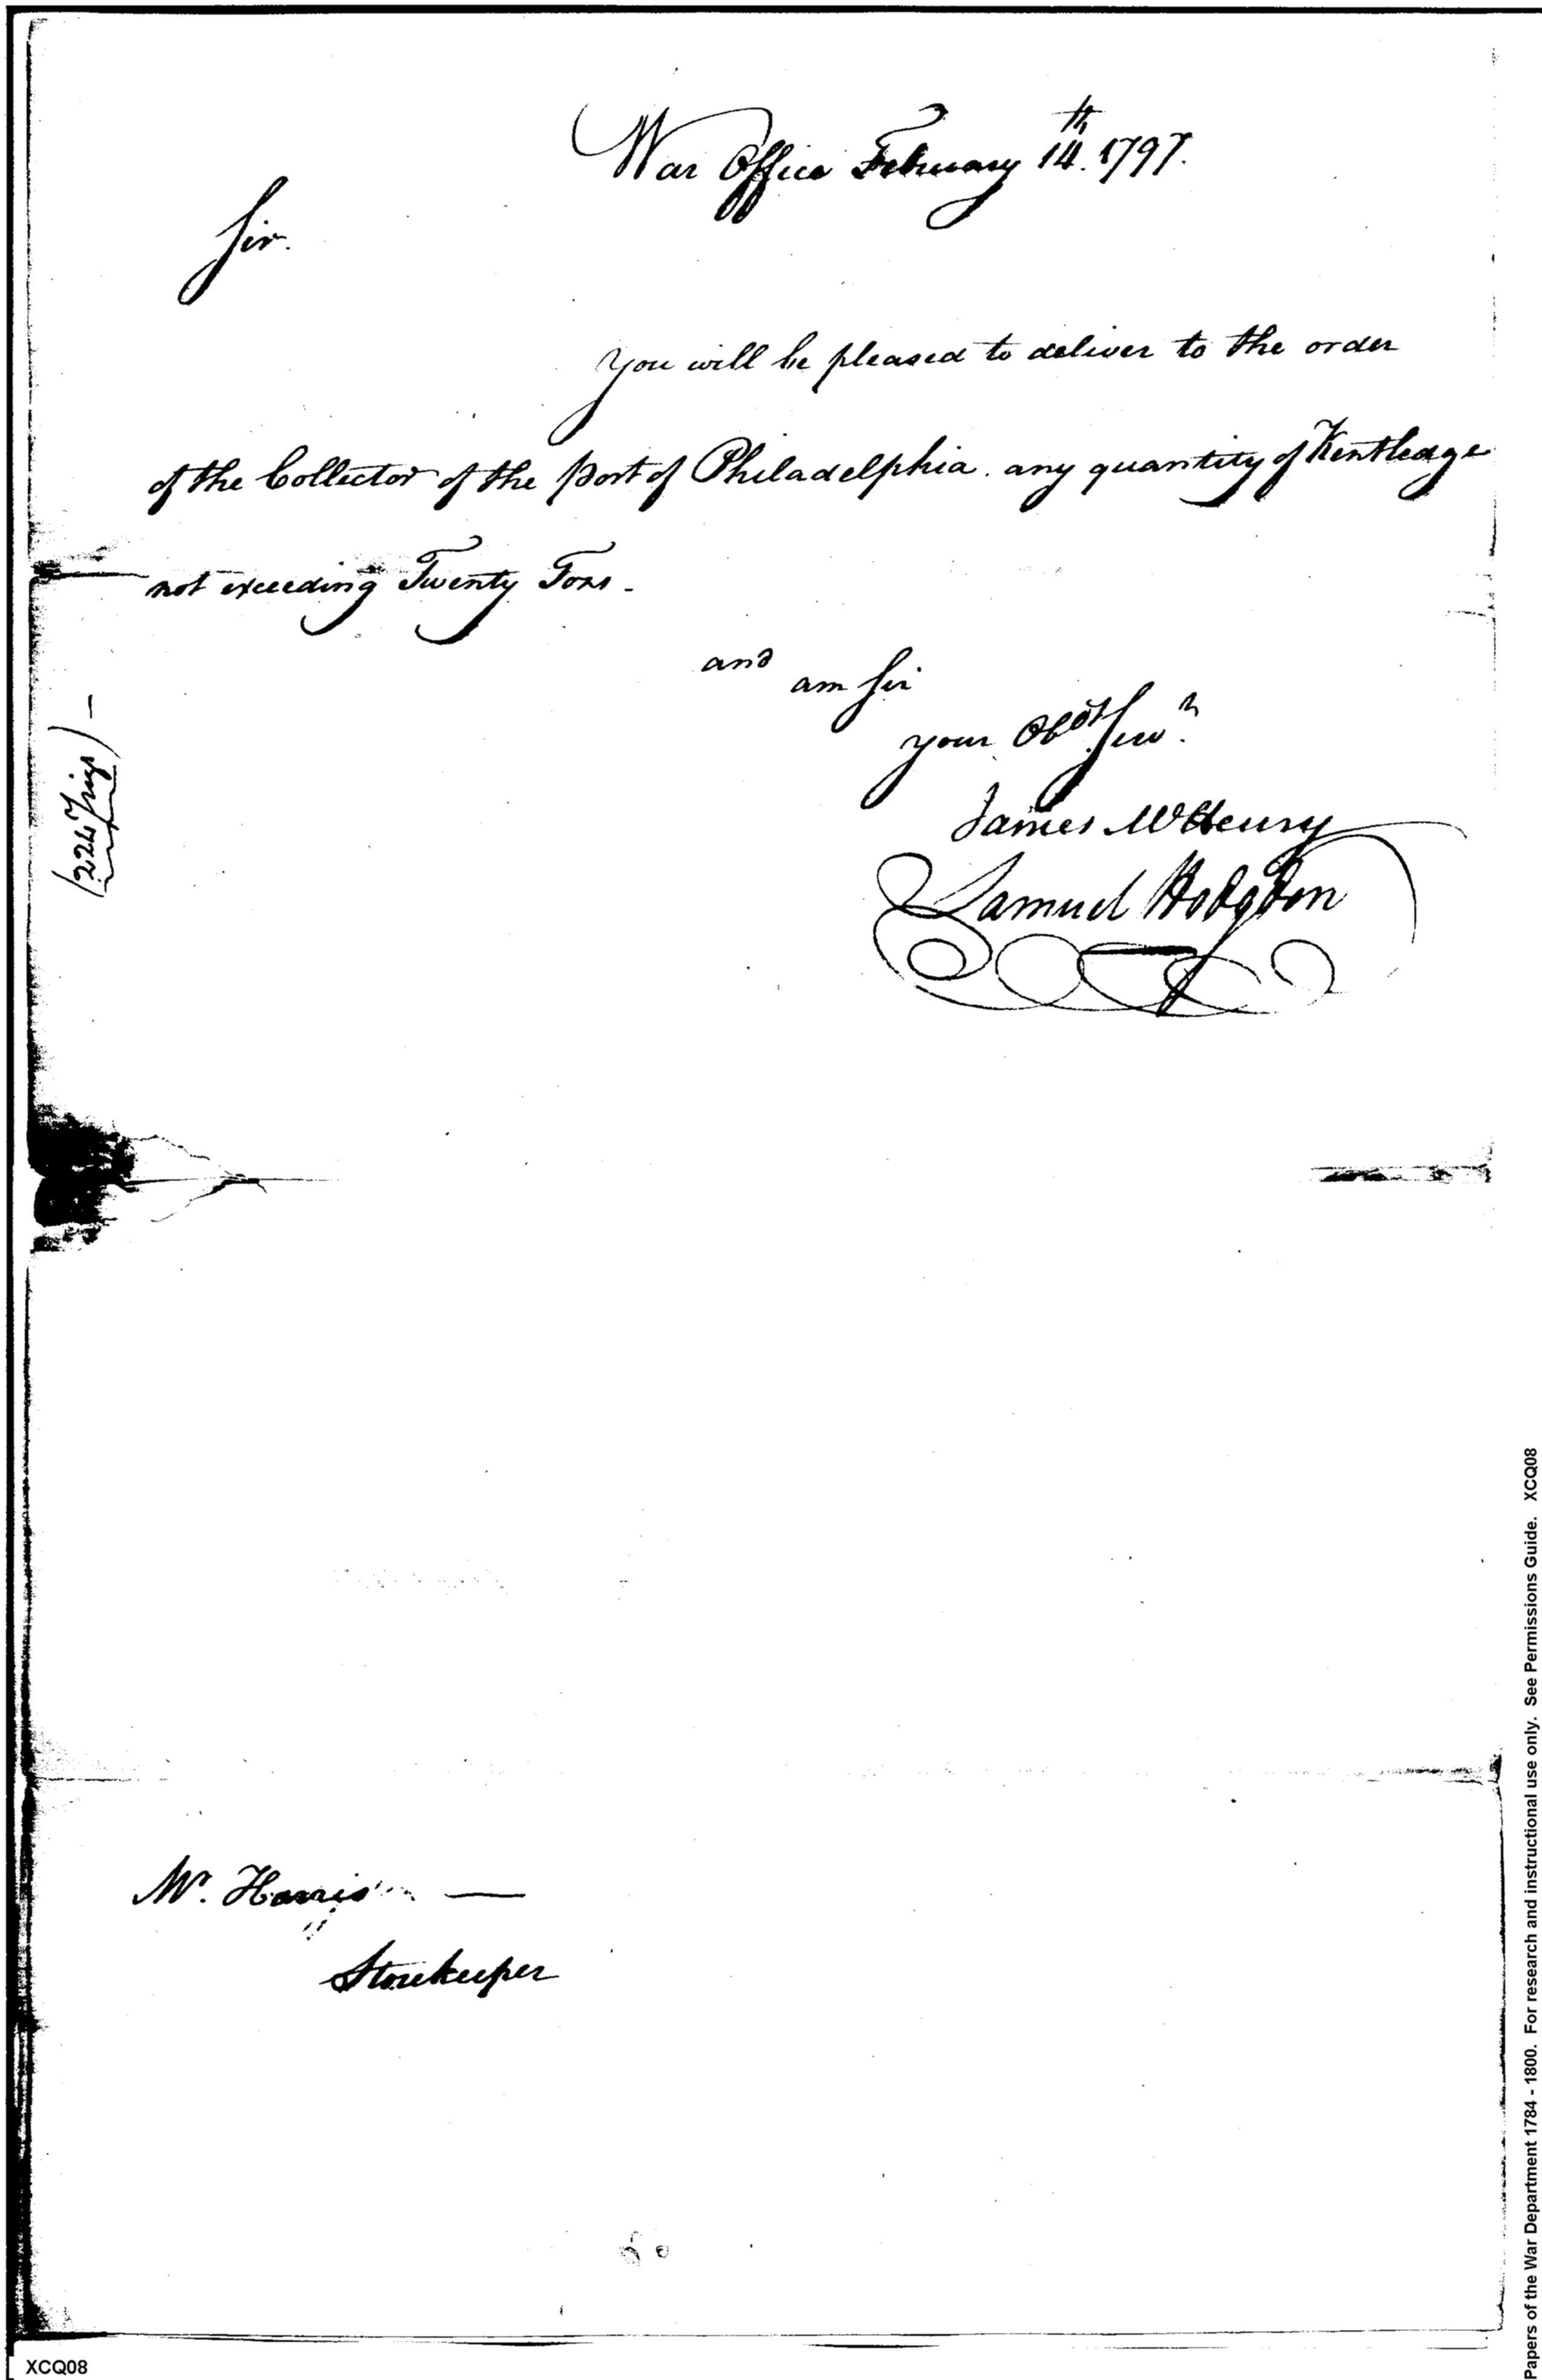 War Office February 14th. 1797.
Sir.
you will be pleased to deliver to the order
of the Collector of the port of Philadelphia. any quantity of Kentledge
not exceeding Twenty Tons -
and
am Sir
your Obdt Serv.
James McHenry
Samuel Hodgdon
(224 Pigs) -
Mr. Harris —
Storekeeper
Papers of the War Department 1784 - 1800. For research and instructional use only. See Permissions Guide. XCQ08
XCQ08